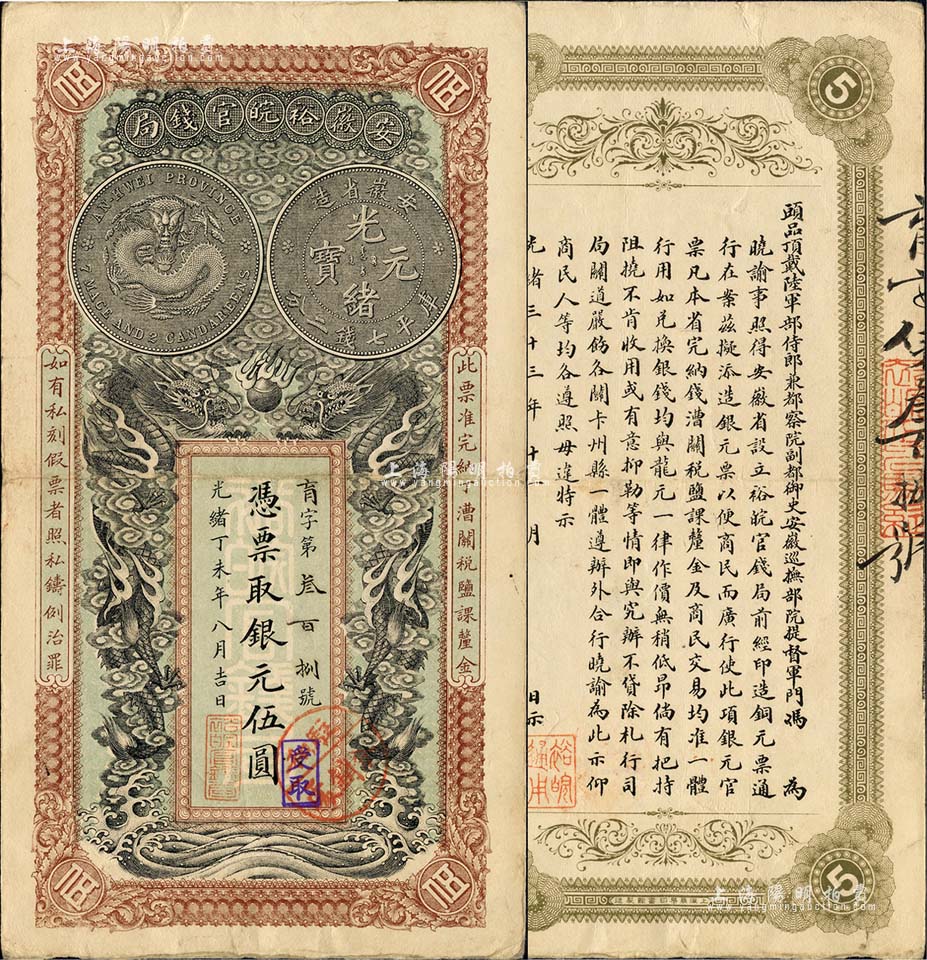 上海陽明拍賣
www.yangmingauction.com
伍
伍
安徽裕皖官錢局
AN-HWEI PROVINCE
7 MACE AND 2 CANDAREENS
安徽省造
光緒元寶
庫平七錢二分
此票准完納丁漕關稅鹽課釐金
如有私刻假票者照私鑄例治罪
育字第叁百捌號
憑票取銀元伍圓
光緒丁未年八月吉日
受取
上海陽明拍賣
www.yangmingauction.com
伍
伍
5
頭品頂戴陸軍部侍郎兼都察院副都御史安徽巡撫部院提督軍門馮 為
曉諭事照得安徽省設立裕皖官錢局前經印造銅元票通
行在案茲擬添造銀元票以便商民而廣行使此項銀元官
票凡本省完納錢漕關稅鹽課釐金及商民交易均准一體
行用如兌換銀錢均與龍元一律作價無稍低昂倘有把持
阻撓不肯收用或有意抑勒等情即與究辦不貸除札行司
局關道嚴飭各關卡州縣一體遵辦外合行曉諭為此示仰
商民人等均各遵照毋違特示
光緒三十三年十 月 日示
5
上海陽明拍賣
www.yangmingauction.com